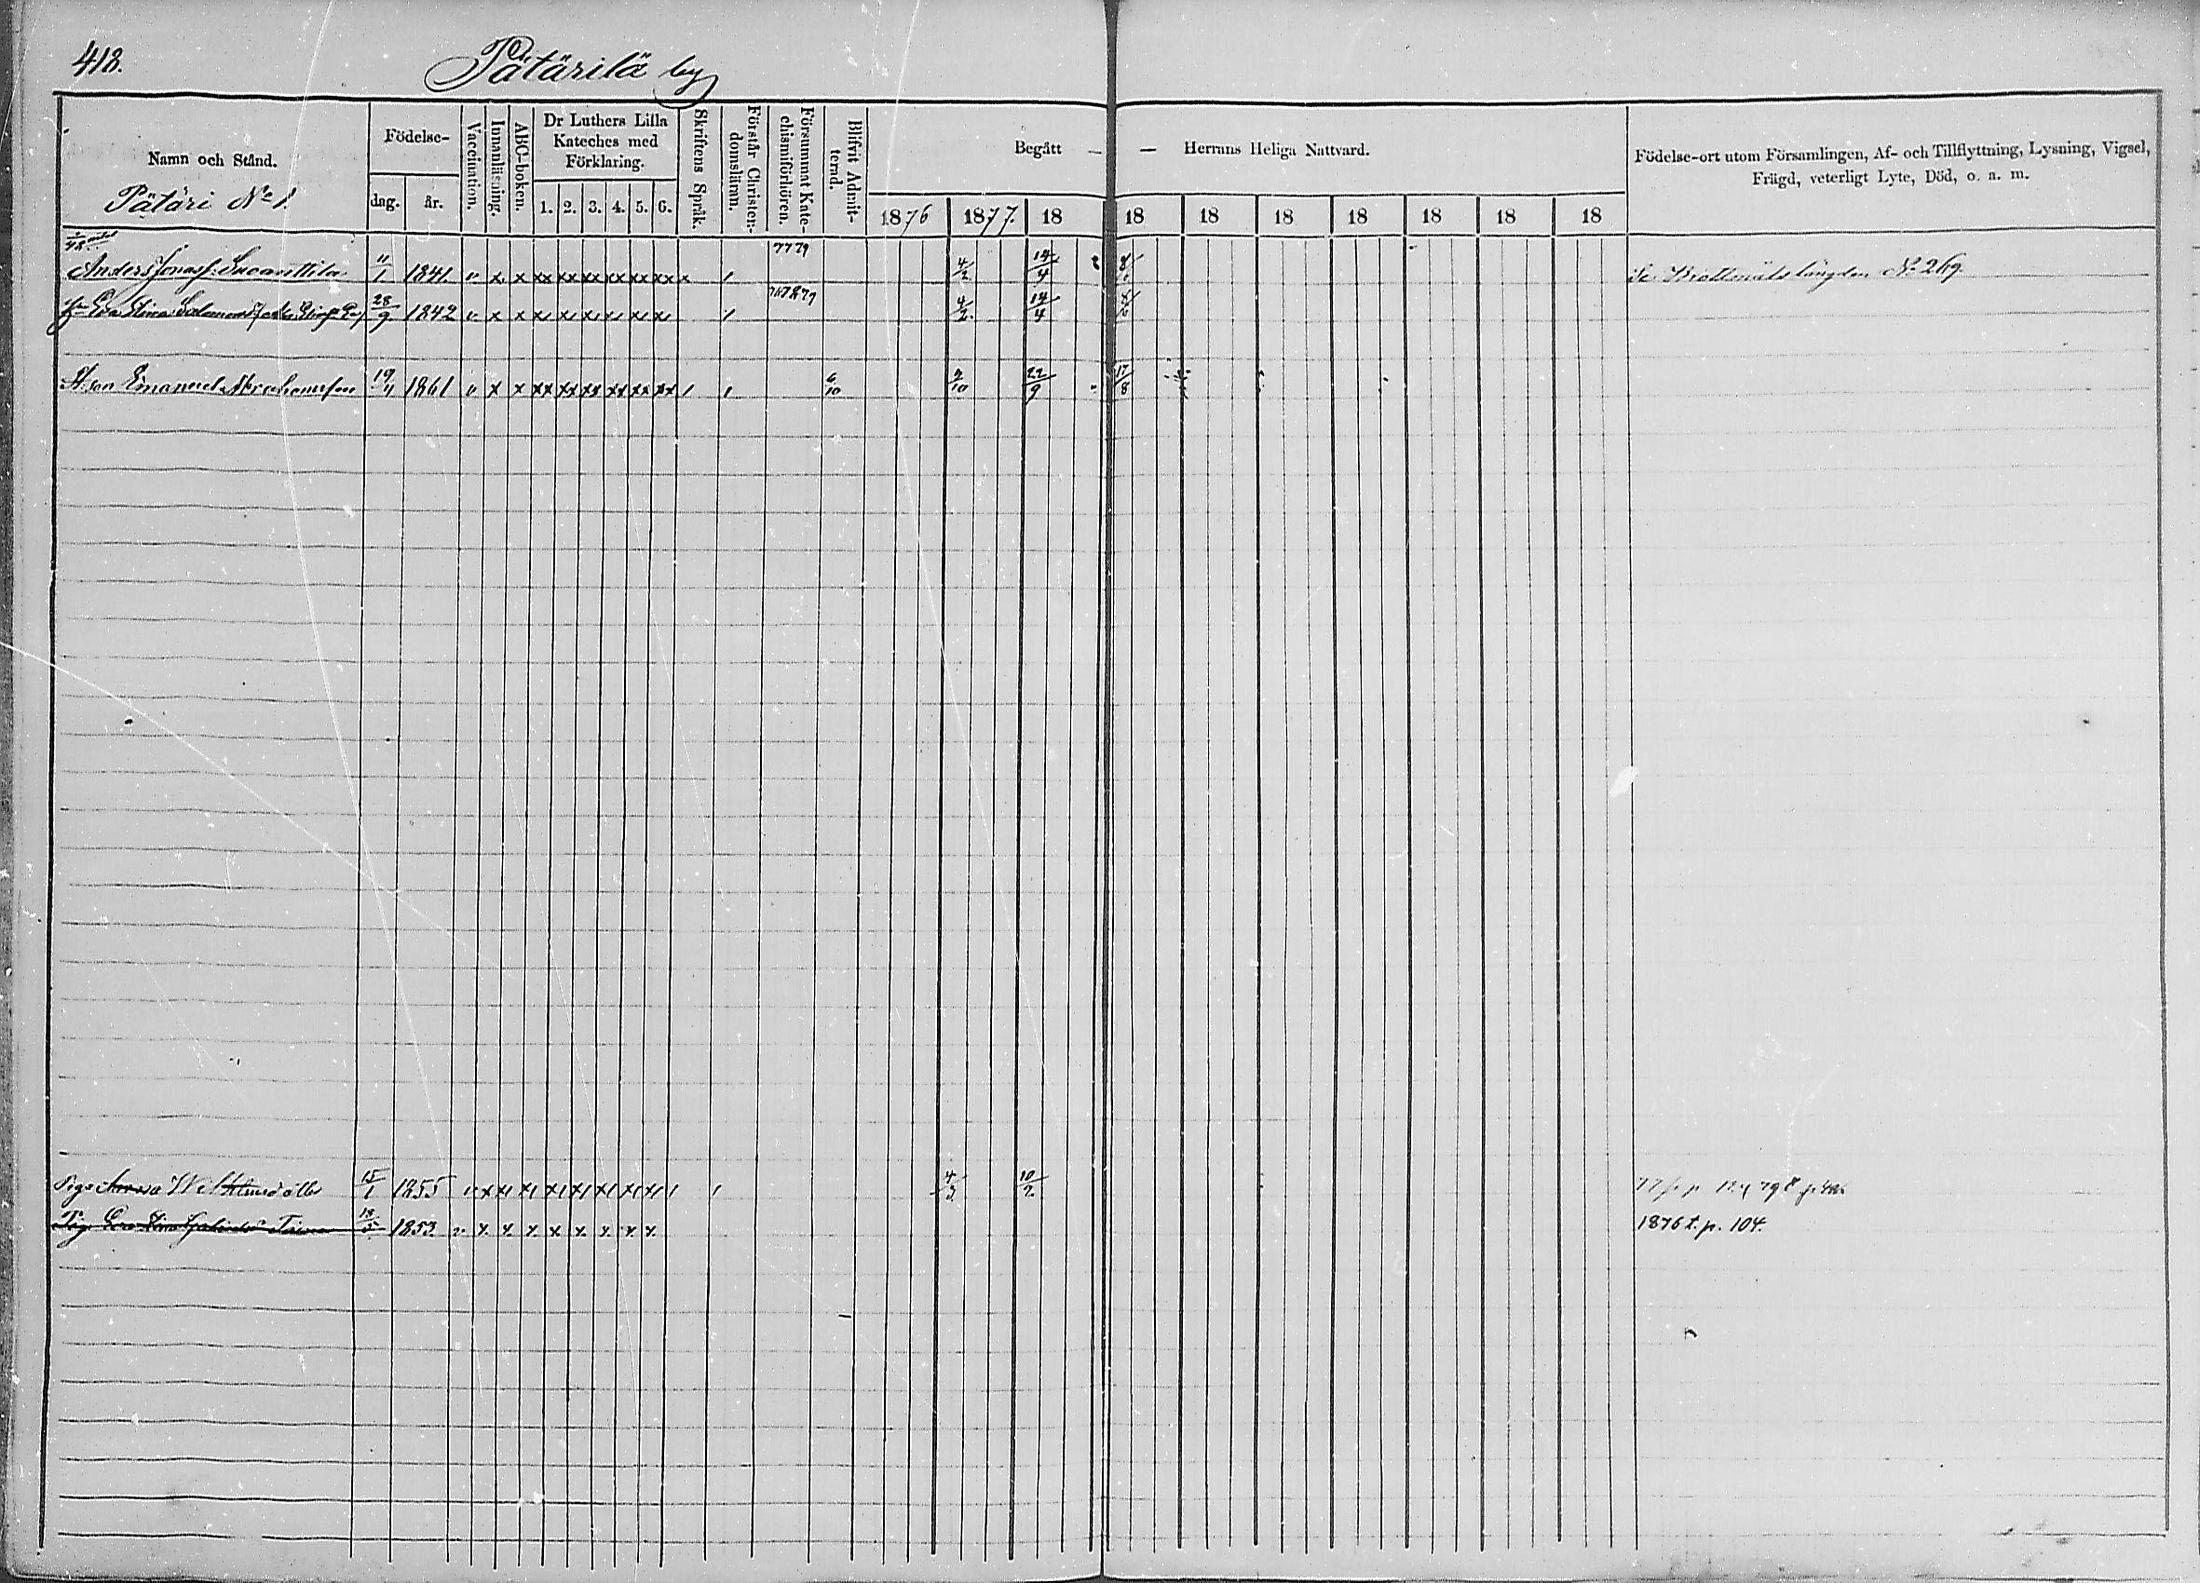 418.
Pätärilä by
Namn och Stånd.
Pätäri No 1.
Födelse-
dag. år.
Vaccination.
Innanläsning.
ABC-boken.
Dr Luthers Lilla Kateches med Förklaring.
1. 2. 3. 4. 5. 6.
Skriftens Språk.
Förstår Christendomsläran.
Försummat Katechismiförhören.
Blifvit Admitterad.
Begått — — Herrans Heliga Nattvard.
1876 1877. 18 18 18 18 18 18 18 18
Födelse-ort utom Församlingen, Af- och Tillflyttning, Lysning, Vigsel,
Frägd, veterligt Lyte, Död, o. a. m.
7779
Anders Jonass: 11/1 1841. v x x xx xx xx xx xx xx x / 4/2 14/4 Se Brottmålslängden No 269.
Eva Stina Salomons 28/9 1842 v x x x x x x x x / 4/2 14/4
St. son Emanuel Abrahamsson 19/11 1861 v x x xx xx xx xx xx xx / / 6/10 9/10 22/9 17/8
Piga 15/1 1855 v x x x x x x x x / / 4/3 10/2
Pig. Eva Stina 18/5 1853 v x x x x x x x x 1876 t. p. 104.